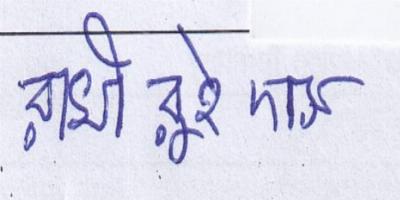 রাখী রুই দাস